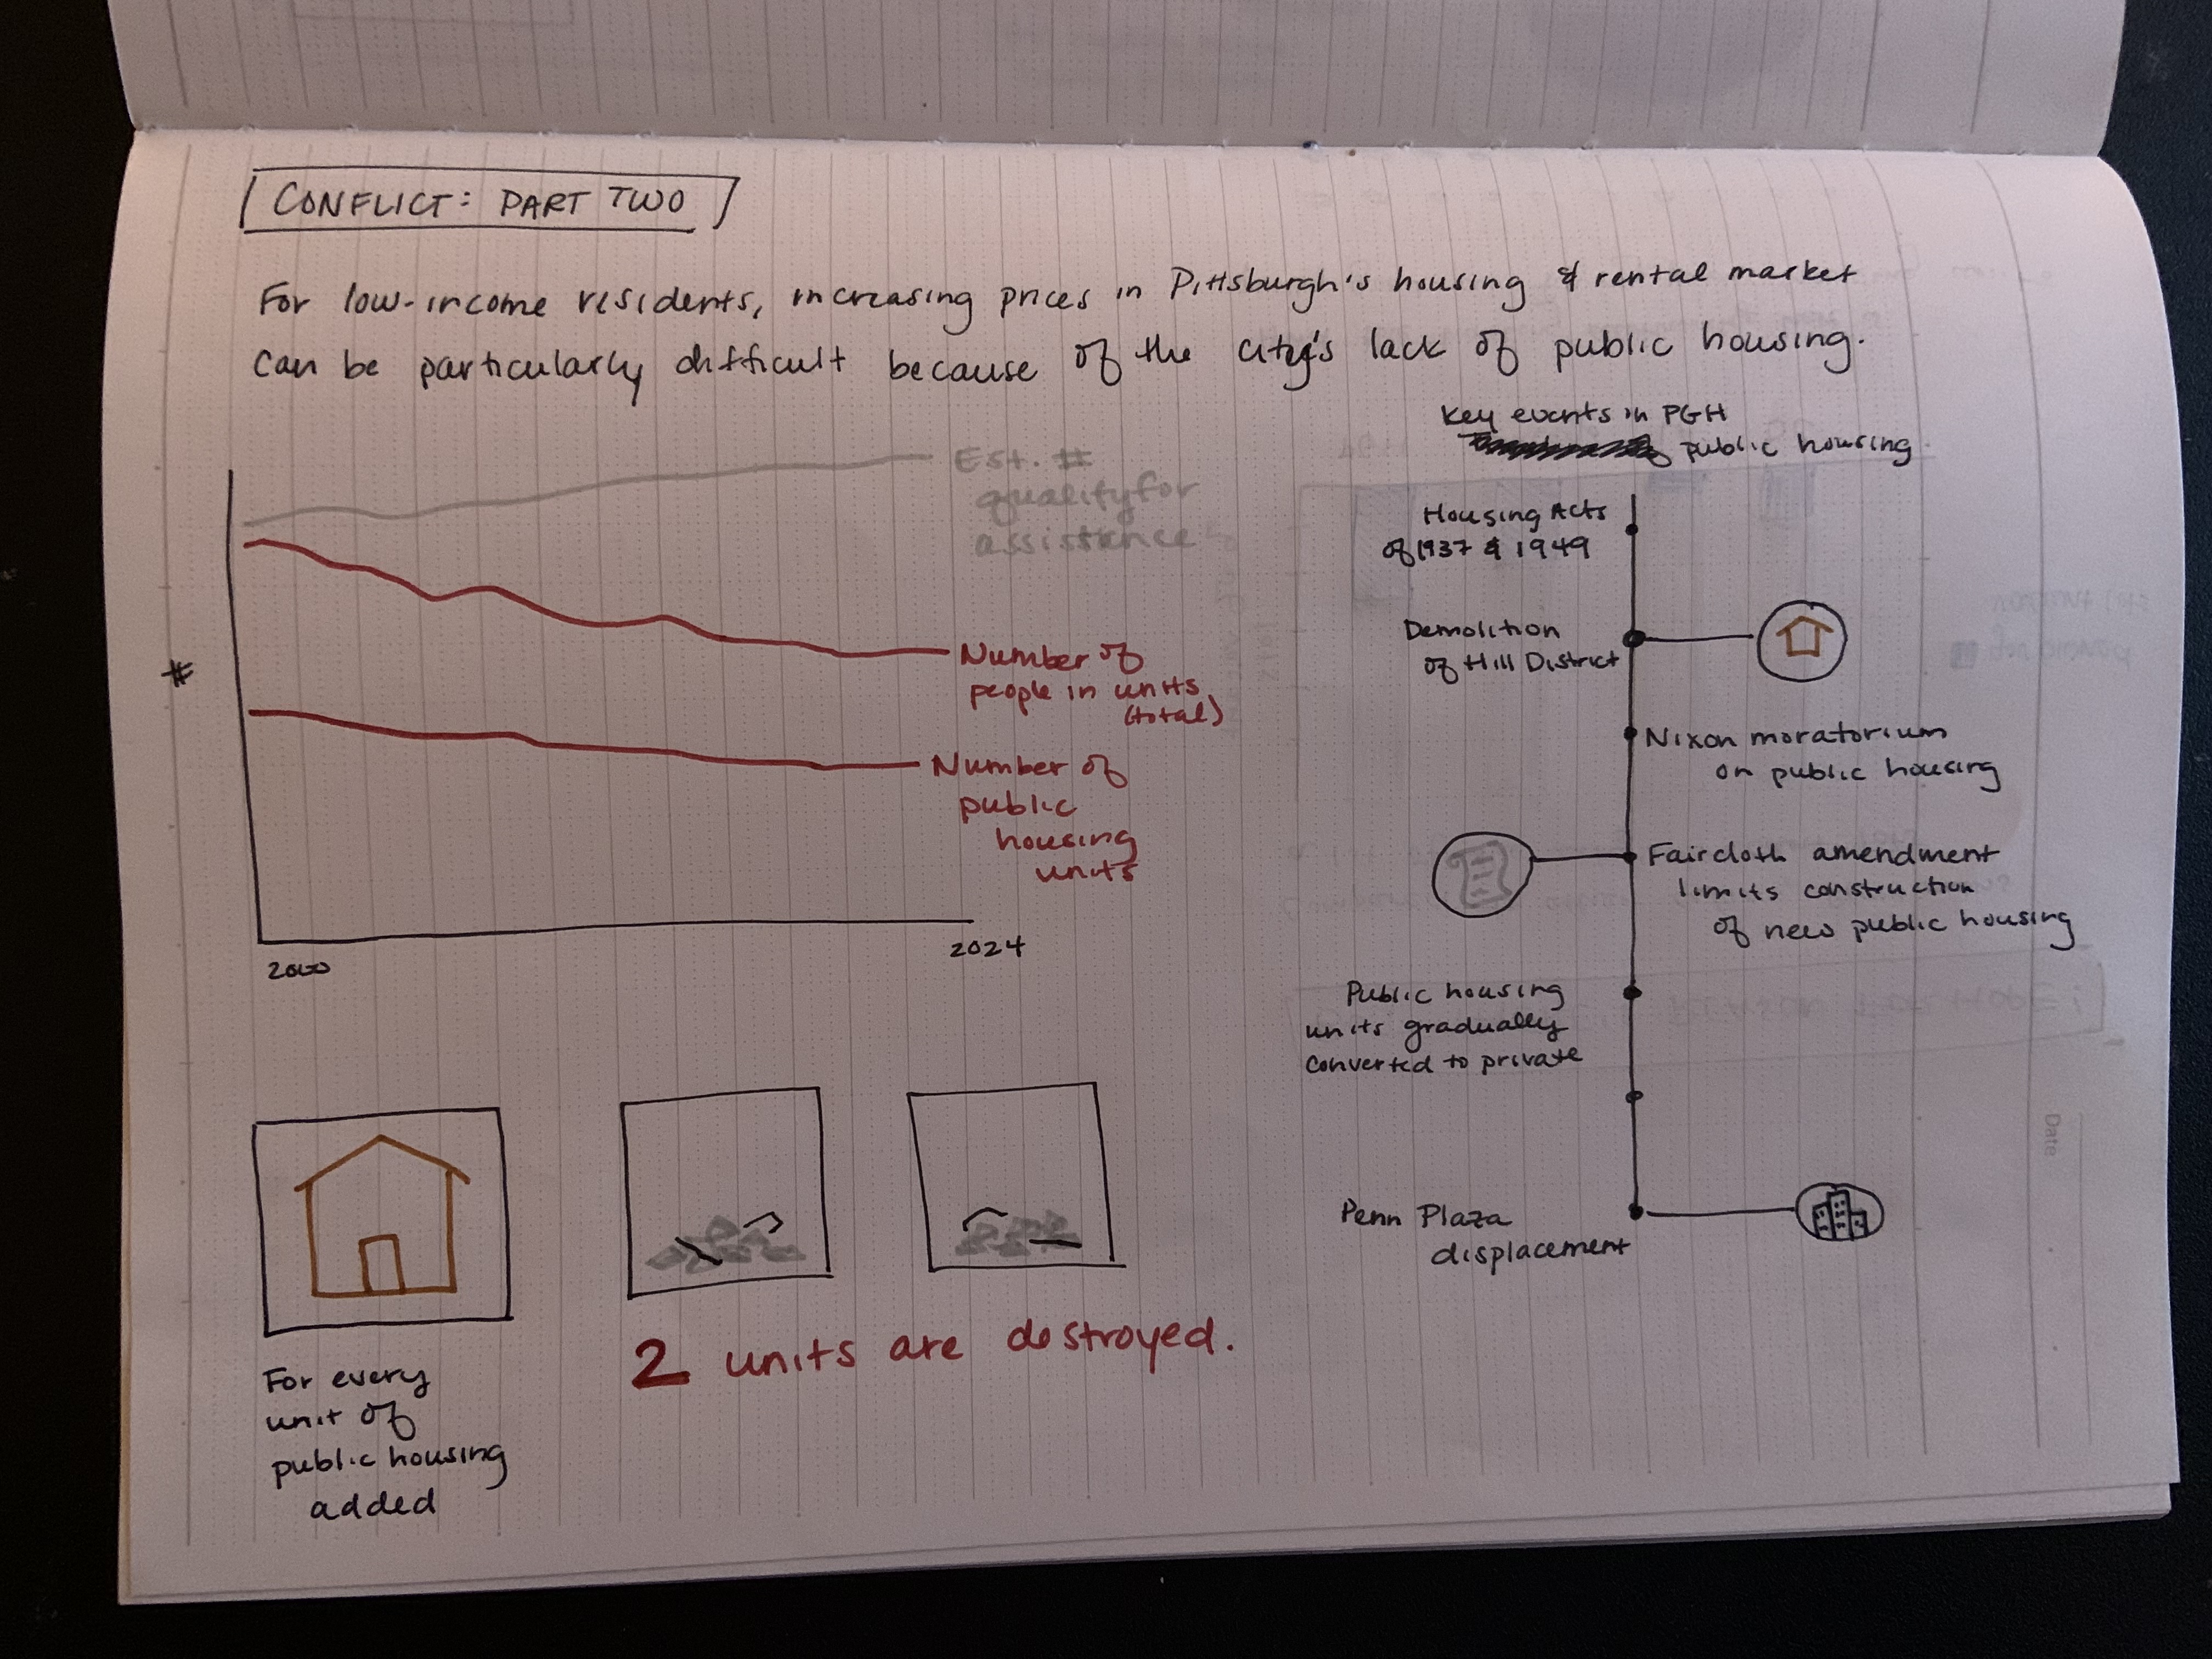 CONFLICT: PART TWO
For low-income residents, increasing prices in Pittsburgh's housing & rental market
can be particularly difficult because of the city's lack of public housing.
Est. #
qualify for
assistance
Number of
people in units
(total)
Number of
public
housing
units
#
2000
2024
For every
unit of
public housing
added
2 units are destroyed.
Key events in PGH
public housing
Housing Acts
of 1937 & 1949
Demolition
of Hill District
Nixon moratorium
on public housing
Faircloth amendment
limits construction
of new public housing
Public housing
units gradually
converted to private
Penn Plaza
displacement
Date